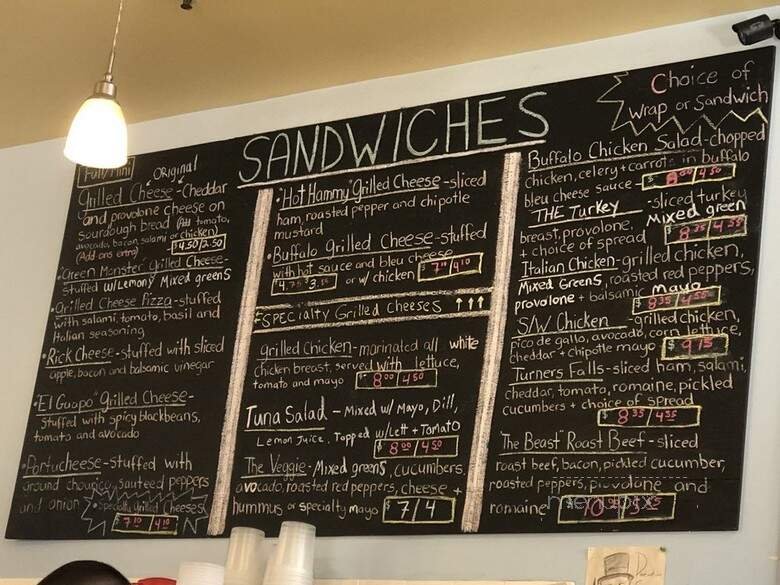 SANDWICHES
Full/Mini
Original
Grilled Cheese - Cheddar
and provolone cheese on
sourdough bread (Add tomato,
avocado, bacon, salami or chicken)
(Add ons extra) $4.50/2.50
"Green Monster" Grilled Cheese-
stuffed w/Lemony Mixed greens
Grilled Cheese Pizza - stuffed
with salami, tomato, basil and
Italian seasoning
Rick Cheese - stuffed with sliced
apple, bacon and balsamic vinegar
"El Guapo" grilled Cheese-
stuffed with spicy blackbeans,
tomato and avocado
Portucheese - stuffed with
ground chouriço, sauteed peppers
and onion
Specialty Grilled Cheeses
7.10/4.10
"Hot Hammy" Grilled Cheese - sliced
ham, roasted pepper and chipotle
mustard
Buffalo grilled Cheese - stuffed
with hot sauce and bleu cheese
or w/ chicken
Especialty Grilled Cheeses ↑↑↑
grilled Chicken - marinated all white
chicken breast, served with lettuce,
tomato and mayo $8.00/4.50
Tuna Salad - Mixed w/ Mayo, Dill,
Lemon Juice. Topped w/Lett + Tomato
$8.00/4.50
The Veggie - Mixed greens, cucumbers,
avocado, roasted red peppers, cheese +
hummus or specialty mayo $7/4
Choice of
Wrap or Sandwich
Buffalo Chicken Salad - chopped
chicken, celery + carrots in buffalo
bleu cheese sauce - $8.00/4.50
THE Turkey - sliced turkey
breast, provolone, Mixed green
+ choice of spread $8.35/4.55
Italian Chicken - grilled chicken,
Mixed Greens, roasted red peppers,
provolone + balsamic Mayo
$8.35/4.55
S/W Chicken - grilled chicken,
pico de gallo, avocado, corn, lettuce,
cheddar + chipotle mayo $9.15
Turners Falls - sliced ham, salami,
cheddar, tomato, romaine, pickled
cucumbers + choice of spread
$8.35/4.55
"The Beast" Roast Beef - sliced
roast beef, bacon, pickled cucumber,
roasted peppers, provolone and
romaine
menupix